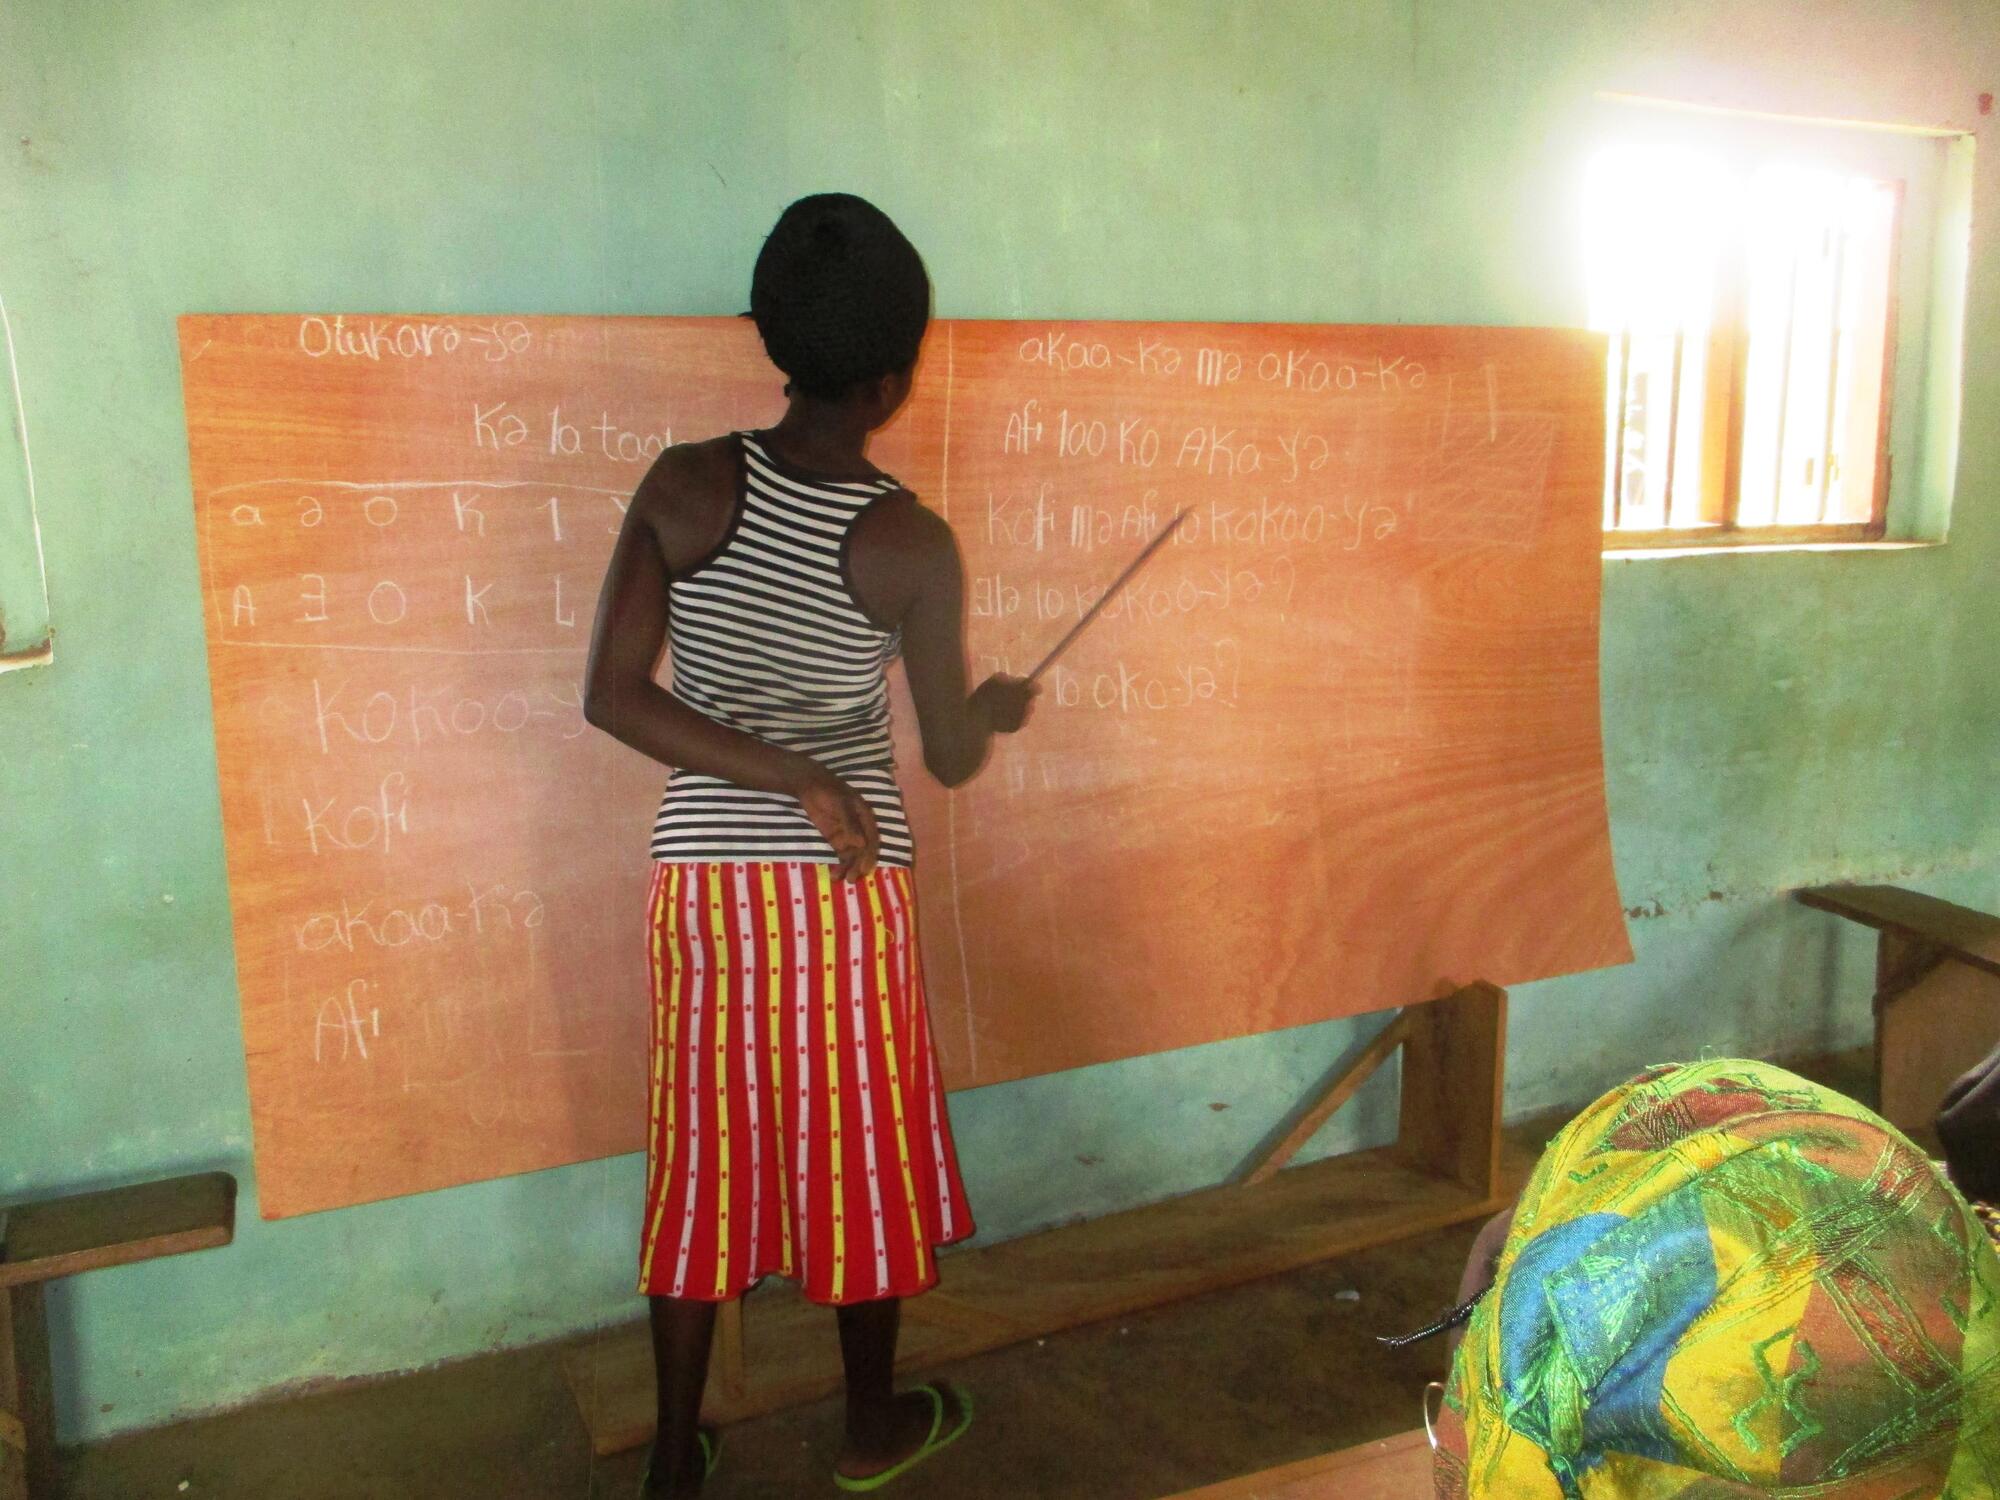 Otukarə-yə
Kə la
a ə o K l
A Ǝ O K L
Kokoo-y
Kofi
akaa-kə
Afi
akaa-kə mə akaa-kə
Afi loo ko Aka-yə.
Kofi mə Afi lo kokoo-yə
Ǝlə lo kokoo-yə?
lo oko-yə?